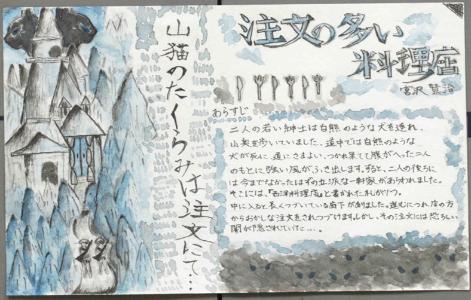 注文の多い
料理店
宮沢 賢治
山猫のたくらみは注文にて…
あらすじ
二人の若い紳士は白熊のような犬を連れ、
山奥を歩いていました。途中では白熊のような
犬が死に、道にさまよい、つかれ果てて腹がへった二人
のもとに強い風がふき出します。すると、二人の後ろに
は今までなかったはずの立派な一軒家があらわれました。
そこには、『西洋料理店』と書かれた札が1つ。
中に入ると長くつづいている廊下がありました。進むにつれ、店の方
からおかしな注文をされつづけます。しかし、その注文には恐ろしい
闇が隠されていた…。